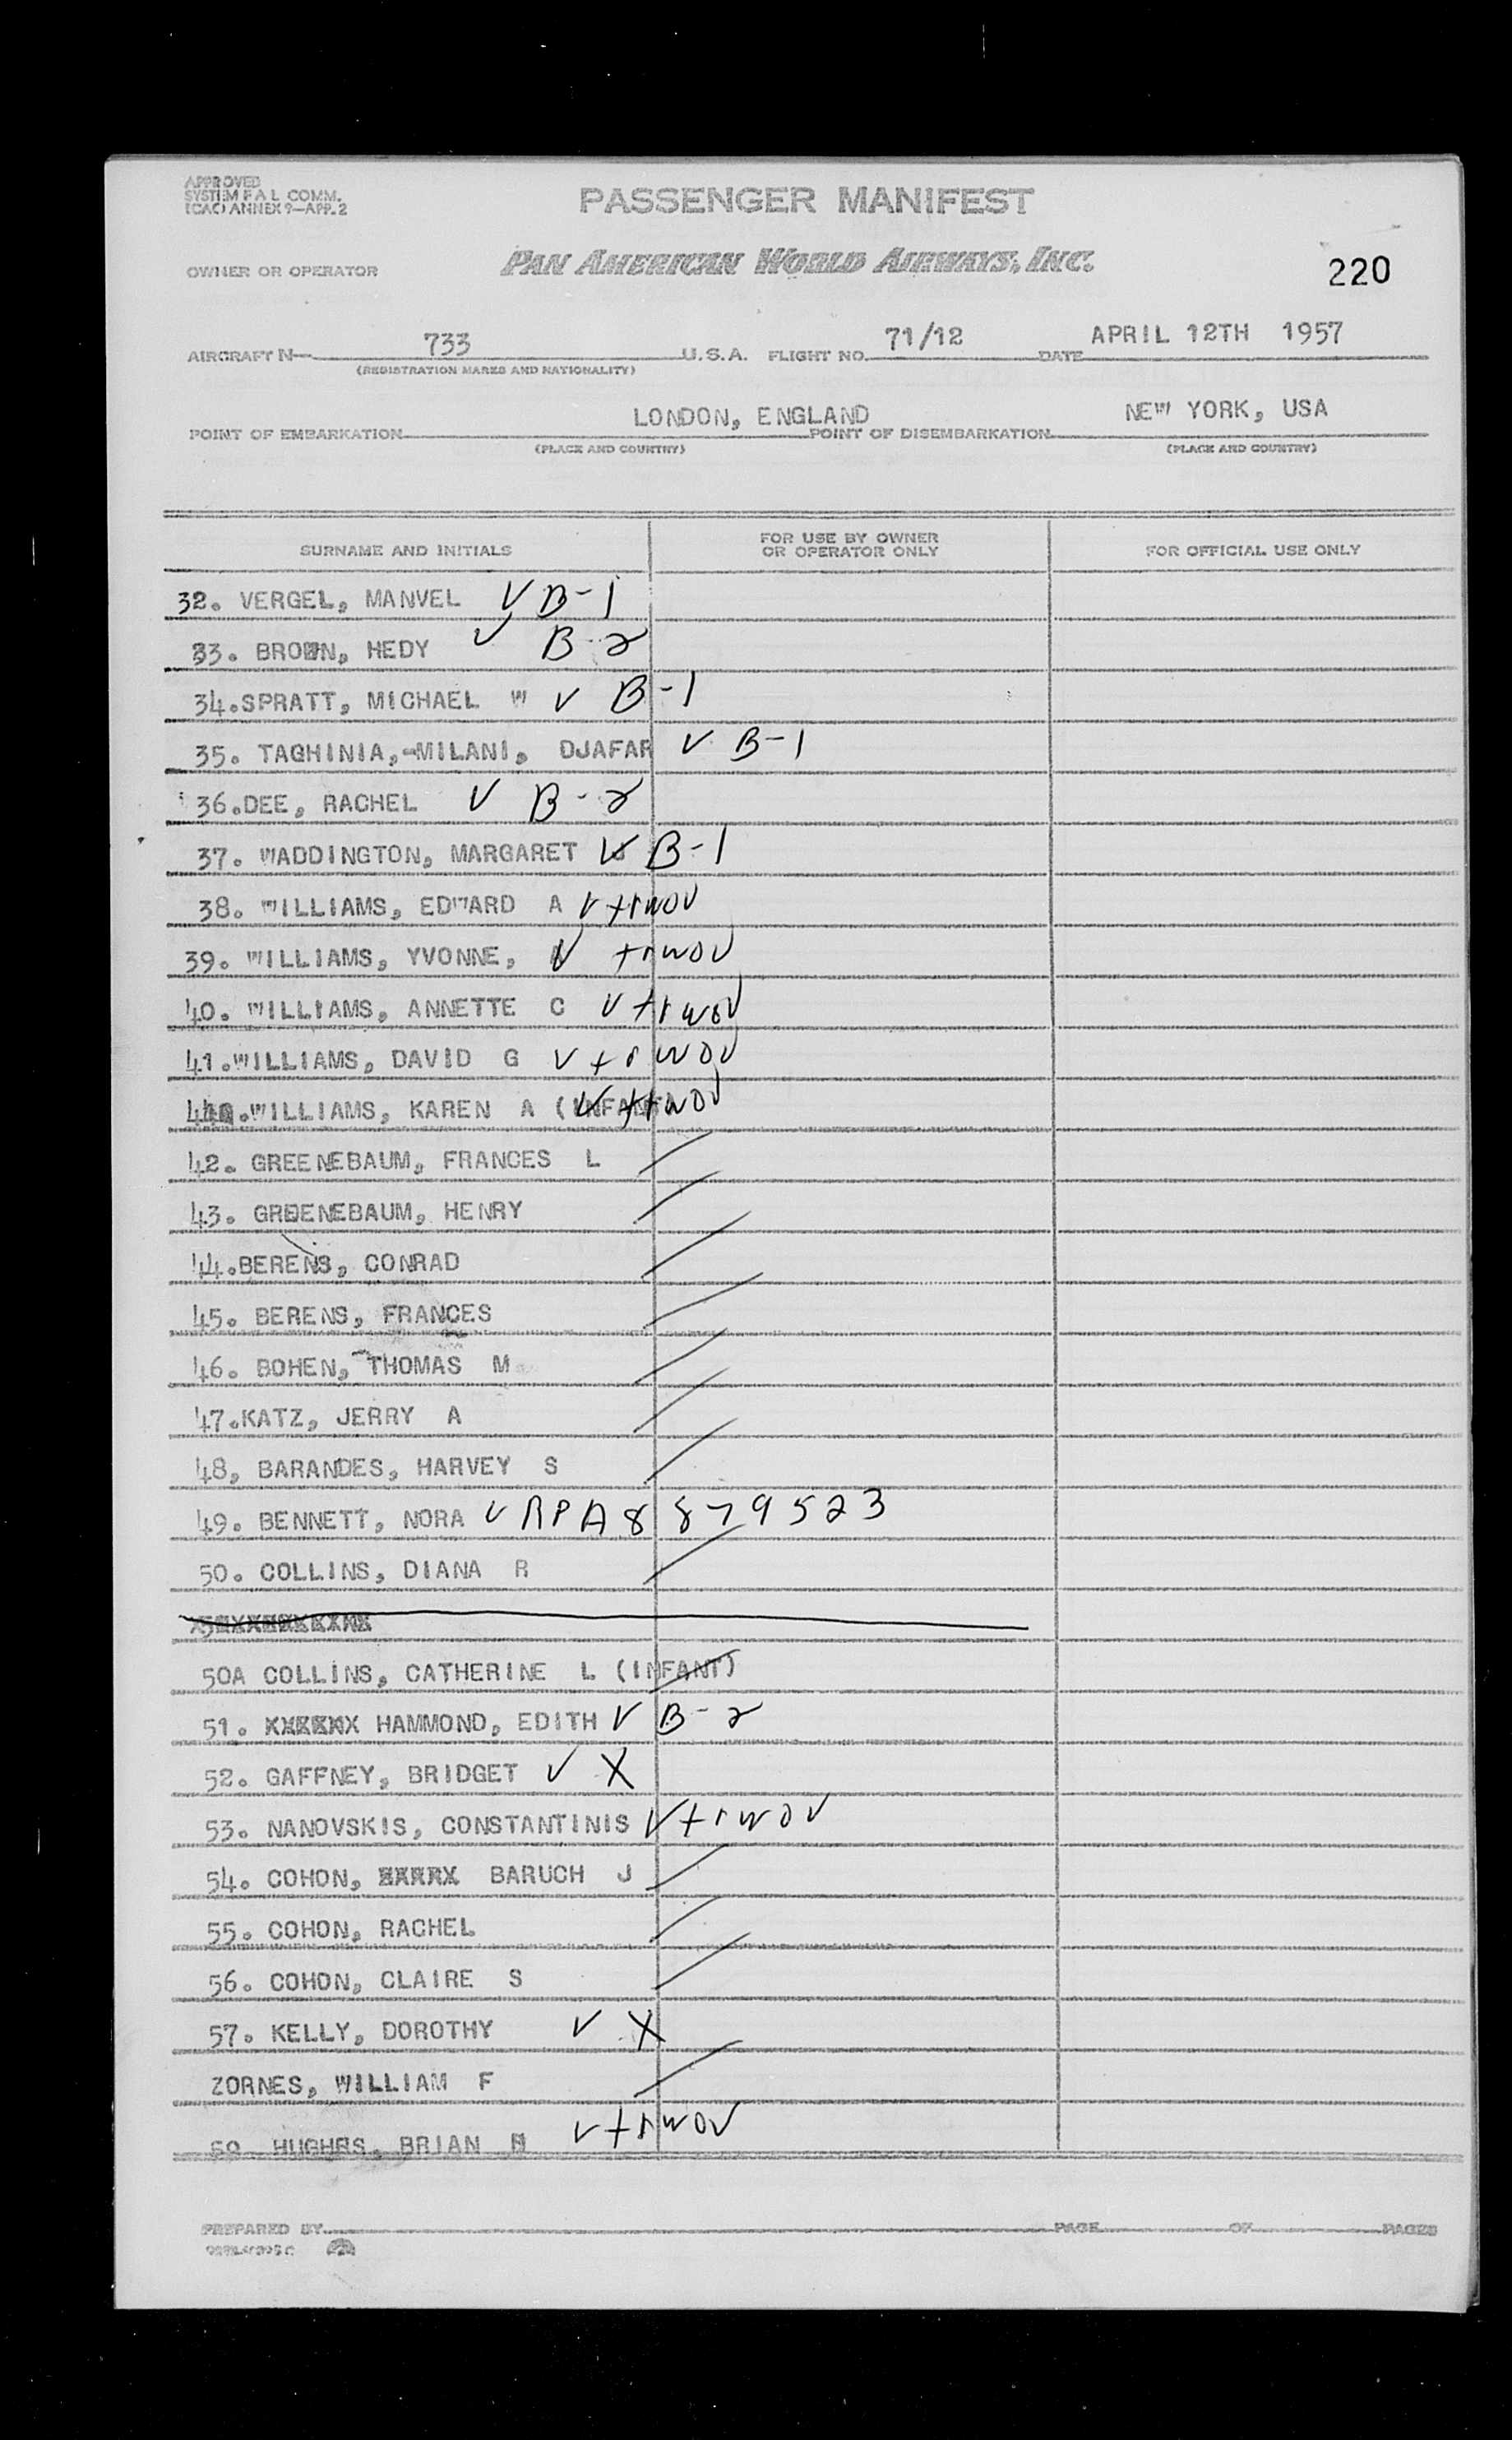 APPROVED
SYSTEM F A L COMM.
(CAC) ANNEX 9—APP. 2
PASSENGER MANIFEST
OWNER OR OPERATOR
PAN AMERICAN WORLD AIRWAYS, INC.
220
AIRCRAFT N— 733 U.S.A. FLIGHT NO. 71/12 DATE APRIL 12TH 1957
(REGISTRATION MARKS AND NATIONALITY)
POINT OF EMBARKATION LONDON, ENGLAND POINT OF DISEMBARKATION NEW YORK, USA
(PLACE AND COUNTRY) (PLACE AND COUNTRY)
SURNAME AND INITIALS FOR USE BY OWNER OR OPERATOR ONLY FOR OFFICIAL USE ONLY
32. VERGEL, MANVEL V B-1
33. BROWN, HEDY V B-2
34.SPRATT, MICHAEL W V B-1
35. TAGHINIA,-MILANI, DJAFAR V B-1
36.DEE, RACHEL V B-2
37. WADDINGTON, MARGARET V B-1
38. WILLIAMS, EDWARD A V trwov
39. WILLIAMS, YVONNE, V trwov
40. WILLIAMS, ANNETTE C V trwov
41.WILLIAMS, DAVID G V trwov
WILLIAMS, KAREN A (INFANT) V trwov
42. GREENEBAUM, FRANCES L
43. GREENEBAUM, HENRY
44.BERENS, CONRAD
45. BERENS, FRANCES
46. BOHEN, THOMAS M
47.KATZ, JERRY A
48, BARANDES, HARVEY S
49. BENNETT, NORA V RPA8 879523
50. COLLINS, DIANA R
50A COLLINS, CATHERINE L (INFANT)
51. XXXXXX HAMMOND, EDITH V B-2
52. GAFFNEY, BRIDGET V X
53. NANOVSKIS, CONSTANTINIS V trwov
54. COHON, BARUCH J
55. COHON, RACHEL
56. COHON, CLAIRE S
57. KELLY, DOROTHY V X
ZORNES, WILLIAM F
59 HUGHES, BRIAN V trwov
PREPARED BY PAGE OF PAGES